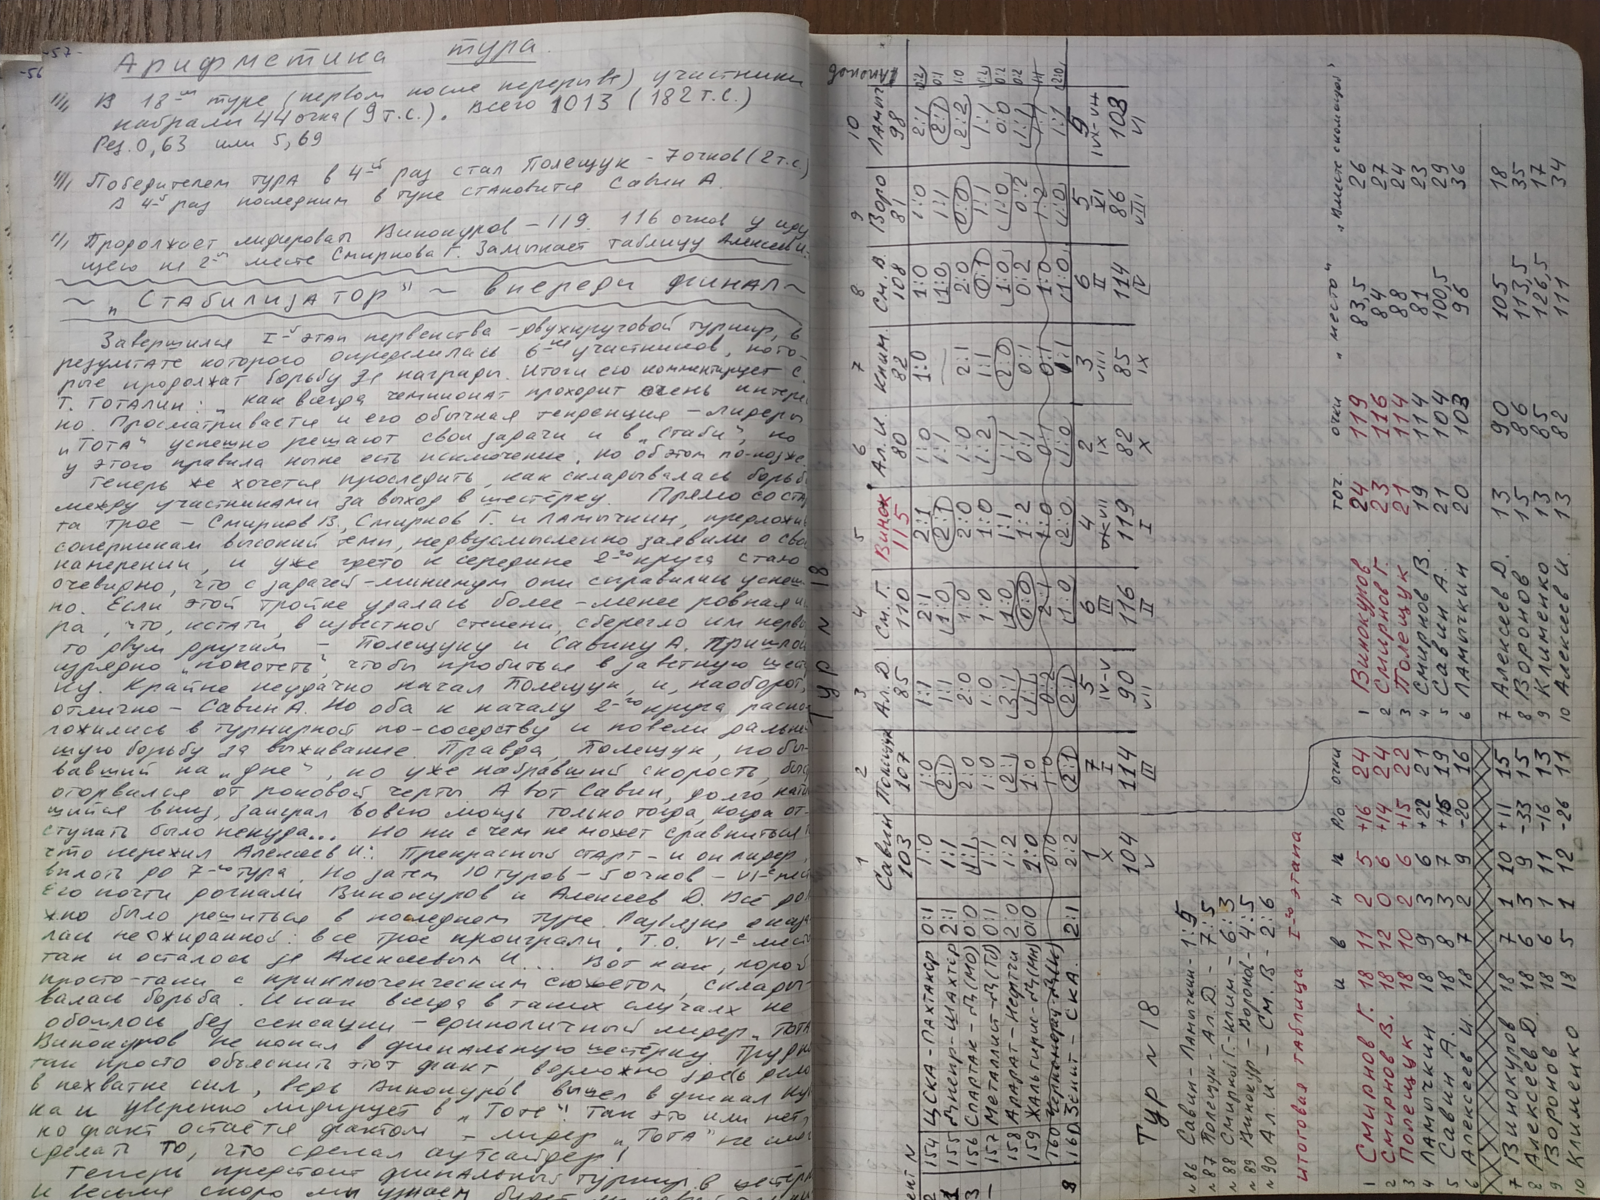 -57-
-56
Арифметика тура.
В 18-м туре (первом после перерыва) участники
набрали 44 очка (9 т.с.). Всего 1013 (182 т.с.)
Рез. 0,63 или 5,69
Победителем тура в 4-й раз стал Полещук - 7 очков (2 т.с.)
А 4-й раз последним в туре становится Савин А.
Продолжает лидировать Винокуров - 119. 116 очков у иду
щего на 2-м месте Смирнова Г. Замыкает таблицу Алексеев И.
~ "Стабилизатор" ~ впереди финал ~
Завершился I-й этап первенства - двухкруговой турнир, в
результате которого определилась 6-ка участников, кото-
рые продолжат борьбу за награды. Итоги его комментирует С.
Т. Тоталин: "Как всегда чемпионат проходит очень интерес
но. Просматривается и его обычная тенденция - лидеры
"Тота" успешно решают свои задачи и в "Стаби", но
у этого правила ныне есть исключение, но об этом попозже.
Теперь же хочется проследить, как складывалась борьба
между участниками за выход в шестёрку. Прямо со стар
та трое - Смирнов В., Смирнов Г. и Ламычкин, предложив
соперникам высокий темп, недвусмысленно заявили о своих
намерении, и уже где-то к середине 2-го круга стало
очевидно, что с задачей-минимум они справились успеш
но. Если этой тройке удалась более-менее ровная иг
ра, что, кстати, в известной степени, сберегло им нервы
то двум другим - Полещуку и Савину А. пришлось
изрядно "попотеть", чтобы пробиться в заветную шес
ку. Крайне неудачно начал Полещук, и, наоборот,
отлично - Савин А. Но оба к началу 2-го круга распо
ложились в турнирной по-соседству и повели дальней
шую борьбу за выживание. Правда, Полещук, побы-
вавший на "дне", но уже набравший скорость, быст
оторвался от роковой черты. А вот Савин, долго кати
щийся вниз, заиграл во всю мощь только тогда, когда от-
ступать было некуда... Но ни с чем не может сравниться
что пережил Алексеев И.: Прекрасный старт - и он лидер
вплоть до 7-го тура. Но затем 10 туров - 5 очков - VI-е место
Его почти догнали Винокуров и Алексеев Д. Всё дол
жно было решиться в последнем туре. Развязка оказа
лась неожиданной: все трое проиграли. Т.о. VI-е место
так и осталось за Алексеевым И... Вот как, порой
просто-таки с приключенческим сюжетом, склады-
валась борьба. И как всегда в таких случаях не
обошлось без сенсации - единоличный лидер "Тота"
Винокуров не попал в финальную шестёрку. Трудно
так просто объяснить этот факт. Возможно здесь дело
в нехватке сил, ведь Винокуров вышел в финал Куб
ка и уверенно лидирует в "Тоте". Так это или нет,
но факт остаётся фактом - лидер "Тота" не смог
сделать то, что сделал аутсайдер!
Теперь предстоит финальный турнир в шестёрке
и весьма скоро мы узнаем
Тур N 18
1 2 3 4 5 6 7 8 9 10
Савин Полещук Ал. Д. См. Г. Винок Ал. И. Клим. См. В. Воро Ламыч
103 107 85 110 115 80 82 108 81 98
154 ЦСКА - Пахтакор 0:1 1:0 1:0 1:1 2:1 2:1 1:0 1:0 1:0 1:0 2:1
155 Днепр - Шахтёр 2:1 1:1 2:1 1:1 1:0 2:1 1:1 - 1:0 1:1 2:1
156 Спартак - Д (МО) 0:0 1:1 2:0 2:0 1:0 2:0 1:0 2:1 2:0 0:0 2:2
157 Металлист - Д (ТБ) 0:1 1:1 1:0 1:0 1:0 1:0 1:2 1:1 0:1 1:1 1:1
158 Арарат - Нефтчи 2:0 1:2 2:1 3:1 1:0 1:1 1:1 2:0 1:0 1:0 0:0
159 Жальгирис - Д (Мн) 0:0 2:0 1:0 1:1 0:0 1:2 0:1 0:1 0:2 0:2 1:1
160 Черноморец - Д (К) 0:0 1:0 0:2 2:1 1:0 0:1 0:1 1:0 1:2 1:1
160 Зенит - СКА 2:1 2:2 2:1 2:1 1:0 2:0 1:0 1:1 1:0 1:0 1:1
1 7 5 6 4 2 3 6 5 9
X I IV-V III VII IX VIII II VI IV-VII
104 114 90 116 119 82 85 114 86 108
V III VII II I X IX IV VIII VI
Тур N 18
N86 Савин - Ламычкин - 1:9
N87 Полещук - Ал. Д. - 7:5
N88 Смирнов Г. - Клим. - 6:3
N89 Винокур - Воронов - 4:5
N90 Ал. И. - См. В. - 2:6
Итоговая таблица I-го этапа
и в н п р/о очки
1 Смирнов Г. 18 11 2 5 +16 24
2 Смирнов В. 18 12 0 6 +14 24
3 Полещук 18 10 2 6 +15 22
4 Ламычкин 18 9 3 6 +22 21
5 Савин А. 18 8 3 7 +15 19
6 Алексеев И. 18 7 2 9 -20 16
7 Винокуров 18 7 1 10 +11 15
8 Алексеев Д. 18 6 3 9 -33 15
9 Воронов 18 6 1 11 -16 13
10 Клименко 18 5 1 12 -26 11
точ. очки "место" "Вместе с командой"
1 Винокуров 24 119 83,5 26
2 Смирнов Г. 23 116 84 27
3 Полещук 21 114 88 24
4 Смирнов В. 19 114 81 23
5 Савин А. 21 104 100,5 29
6 Ламычкин 20 108 96 36
7 Алексеев Д. 13 90 105 18
8 Воронов 15 86 113,5 35
9 Клименко 13 85 126,5 17
10 Алексеев И. 13 82 111 34